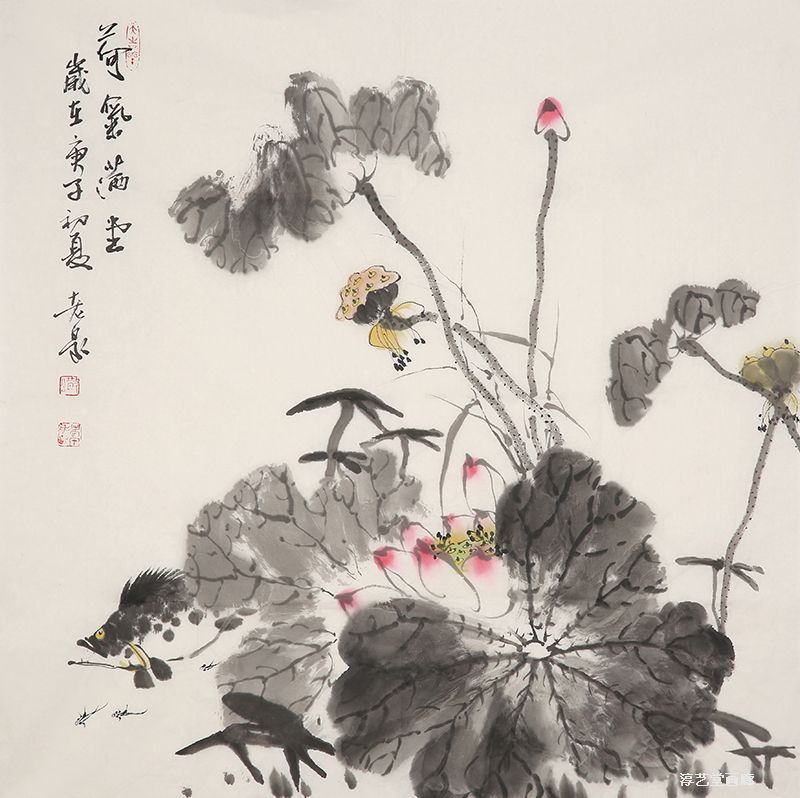 荷氣滿堂
歲在庚子初夏 老泉
淳艺堂画廊